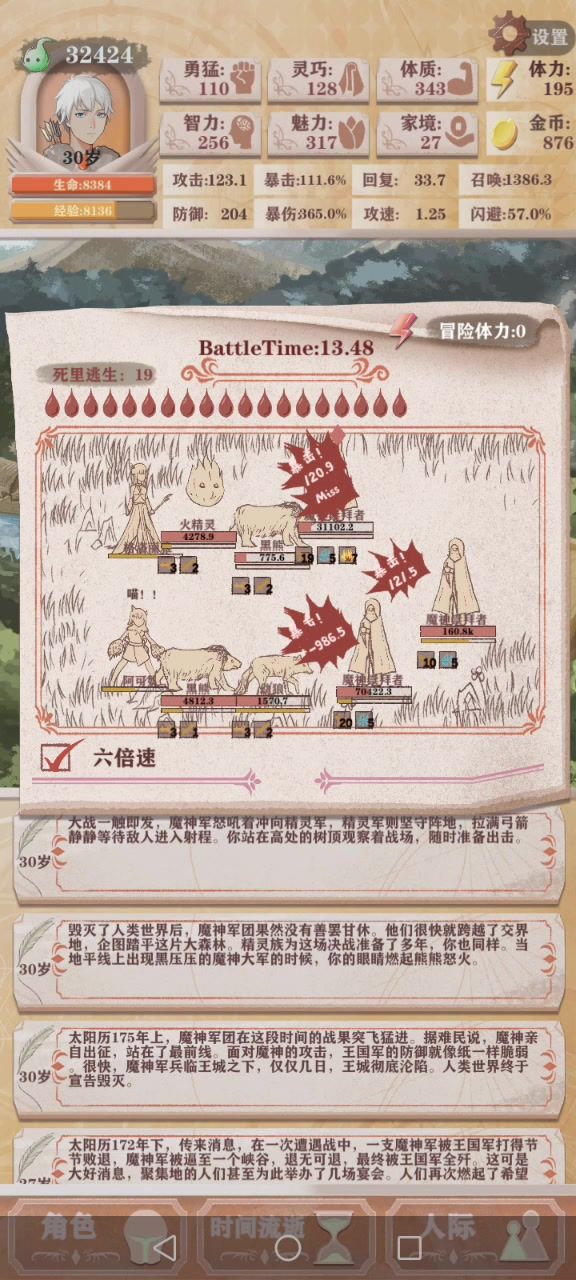 32424
设置
勇猛:
110
灵巧:
128
体质:
343
体力:
195
智力:
256
魅力:
317
家境:
27
金币:
876
30岁
生命:8384
经验:8136
攻击:123.1
暴击:111.6%
回复: 33.7
召唤:1386.3
防御: 204
暴伤:365.0%
攻速: 1.25
闪避:57.0%
冒险体力:0
BattleTime:13.48
死里逃生: 19
暴击!
120.9
Miss
火精灵
4278.9
31102.2
黑熊
775.6
3 2
19 5 7
3 2
暴击!
121.5
魔神崇拜者
160.8k
10 5
喵!!
暴击!
-986.5
黑熊
4812.3
1570.7
魔神崇拜者
70422.3
3 1
3 2
20 5
六倍速
大战一触即发，魔神军怒吼着冲向精灵军，精灵军则坚守阵地，拉满弓箭
静静等待敌人进入射程。你站在高处的树顶观察着战场，随时准备出击。
30岁
毁灭了人类世界后，魔神军团果然没有善罢甘休。他们很快就跨越了交界
地，企图踏平这片大森林。精灵族为这场决战准备了多年，你也同样。当
地平线上出现黑压压的魔神大军的时候，你的眼睛燃起熊熊怒火。
30岁
太阳历175年上，魔神军团在这段时间的战果突飞猛进。据难民说，魔神亲
自出征，站在了最前线。面对魔神的攻击，王国军的防御就像纸一样脆弱
。很快，魔神军兵临王城之下，仅仅几日，王城彻底沦陷。人类世界终于
宣告毁灭。
30岁
太阳历172年下，传来消息，在一次遭遇战中，一支魔神军被王国军打得节
节败退，魔神军被逼至一个峡谷，退无可退，最终被王国军全歼。这可是
大好消息，聚集地的人们甚至为此举办了几场宴会。人们再次燃起了希望
27岁
角色
时间流逝
人际